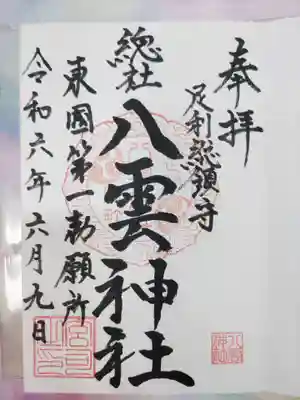 奉拝
足利総領守
總社
八雲神社
東國第一勅願所
令和六年六月九日